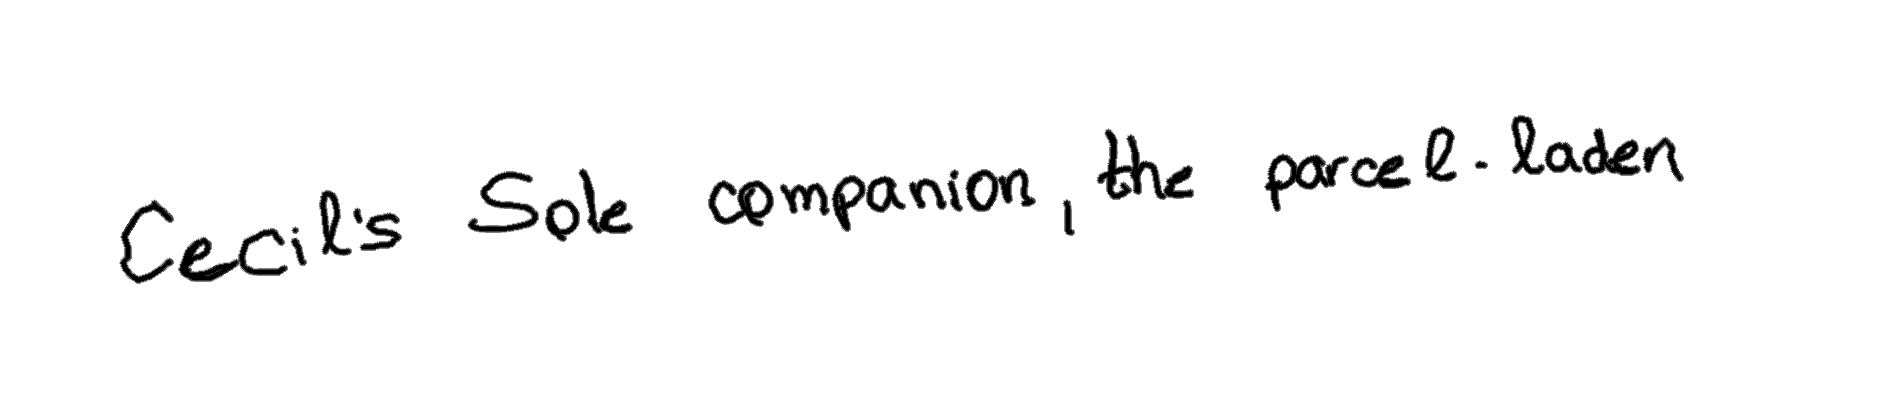 Cecil's Sole companion, the parcel-laden